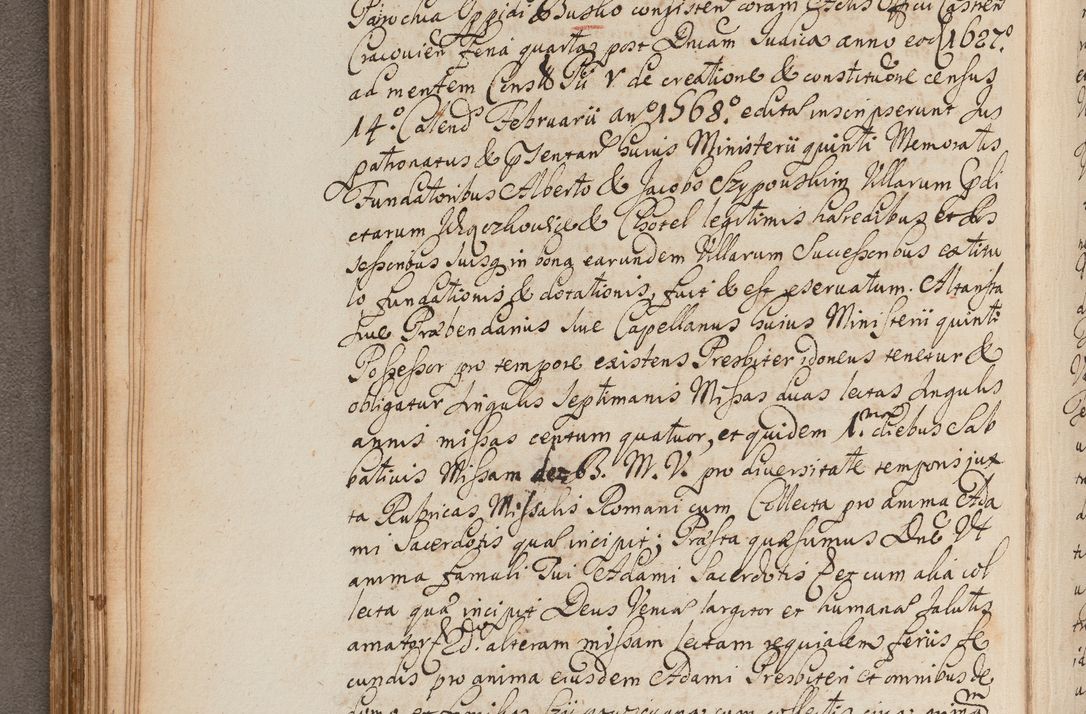 Parochia Oppidi Busko consisten coram Actis Offcii Castren
Cracovien feria quarta post Dnicam Iudica anno eod 1687.º
ad mentem Consti Pii V de creatione & constitutione census
14.º Calend Februarii anº 1568.º edita inscripserunt Jus
patronatus & psentan huius Ministerii quinti Memoratis
Fundatoribus Alberto & Jacobo Szypowskim Villarum pdi
ctarum & Chotel legitimis haeredibus et Pos
sessoribus suisq in bona earundem Villarum Successoribus ex titu
lo fundationis & dotationis, fuit & est reservatum. Altarista
sive Præbendarius sive Capellanus huius Ministerii quinti
Possessor pro tempore existens Presbiter idoneus tenetur &
obligatur singulis septimanis Missas duas lectas singulis
annis missas centum quatuor, et quidem 1.mo diebus Sab
bativis Missam de B. M. V. pro diversitate temporis jux
ta Rubricas Missalis Romani cum Collecta pro anima Ada
mi Sacerdotis qua incipit; Præsta quæsumus Dne Vt
anima famuli Tui Adami Sacerdotis & et cum alia col
lecta qua incipit Deus Veniæ largitor et humanæ salutis
amator & 2dº alteram missam lectam requialem feriis se
cundis pro anima eiusdem Adami Presbiteri et omnibus de